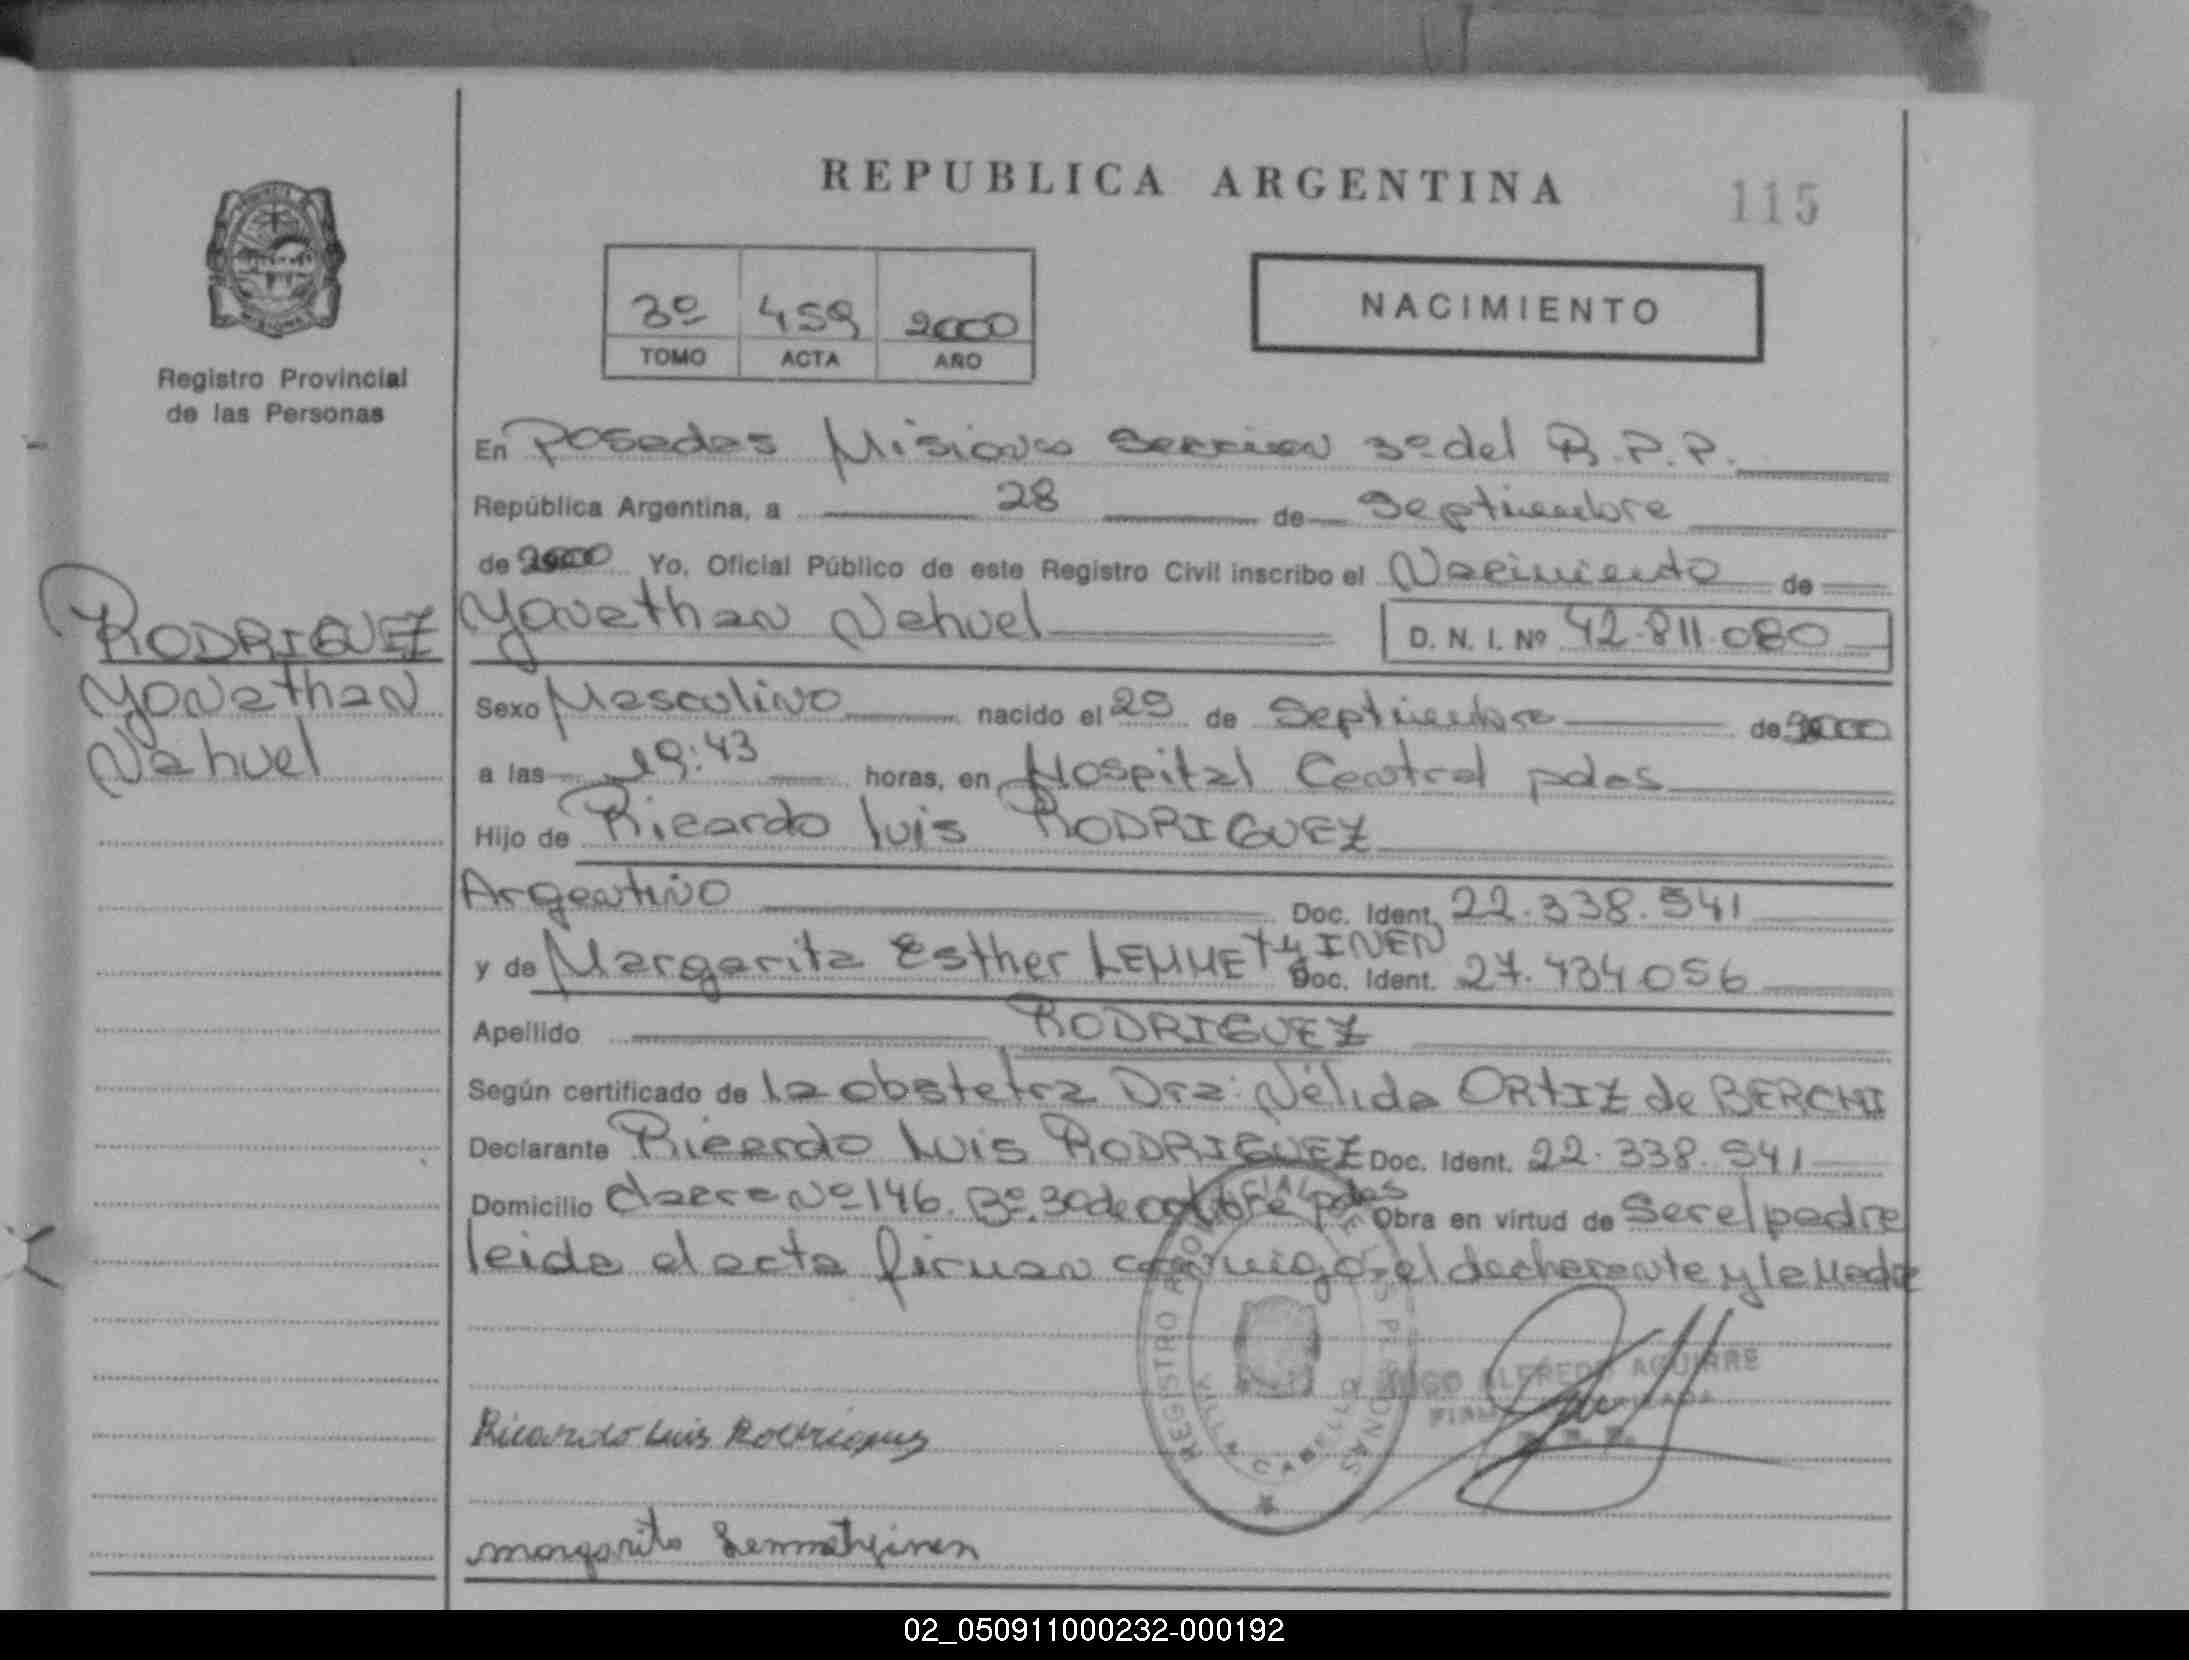 REPUBLICA ARGENTINA
115
3º 459 2000
TOMO ACTA AÑO
NACIMIENTO
Registro Provincial
de las Personas
En Posadas Misiones Seccion 3º del R.P.P.
República Argentina, a 28 de Septiembre
de 2000 Yo, Oficial Público de este Registro Civil inscribo el Nacimiento de
Yonathan Nahuel D. N. I. Nº 42.811.080
RODRIGUEZ
Yonathan
Nahuel
Sexo Masculino nacido el de Septiembre de 2000
a las 19:43 horas, en Hospital Central pdas
Hijo de Ricardo Luis RODRIGUEZ
Argentino Doc. Ident. 22.338.541
y de Margarita Esther LEMMETYINEN Doc. Ident. 27.734.056
Apellido RODRIGUEZ
Según certificado de la obstetra Dra: Nélida ORTIZ de BERCHI
Declarante Ricardo Luis RODRIGUEZ Doc. Ident. 22.338.541
Domicilio Nº 146. Bº 30 de octubre pdas Obra en virtud de Ser el padre
leida el acta firman conmigo el declarante y la Madre
REGISTRO PROVINCIAL DE LAS PERSONAS
VILLA CABELLO
ALFREDO AGUIRRE
Ricardo Luis Rodriguez
margarita Lemmetyinen
02_050911000232-000192